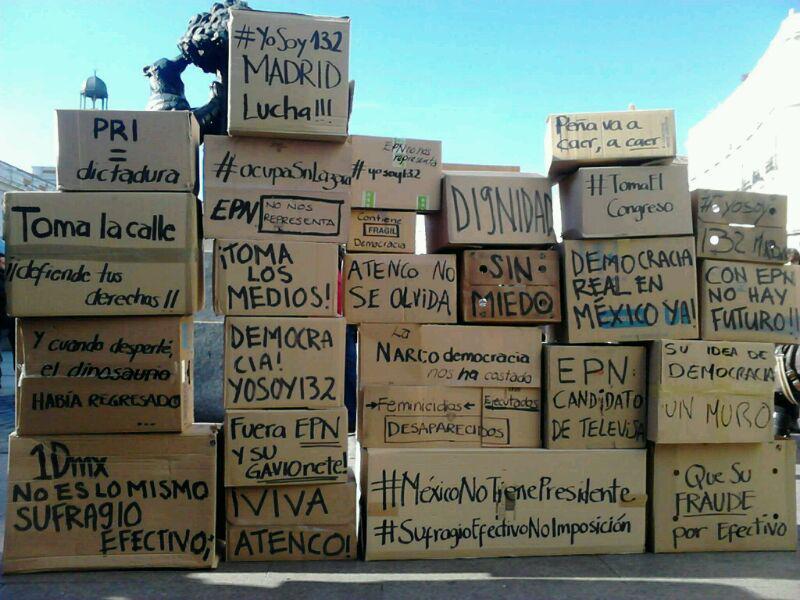 #YoSoy132
MADRID
Lucha!!!
PRI
=
dictadura
#ocupaSnLazaro
EPN NO NOS
REPRESENTA
EPN no nos
representa
#yosoy132
Contiene
FRAGIL
Democracia
DIGNIDAD
Peña va a
caer, a caer
#TomaEl
Congreso
#Yosoy
132 Madrid
Toma la calle
¡¡defiende tus
derechos!!
¡TOMA
LOS
MEDIOS!
ATENCO NO
SE OLVIDA
SIN
MIEDO
DEMOCRACIA
REAL EN
MÉXICO YA!
CON EPN
NO HAY
FUTURO!!
Y cuando desperté,
el dinosaurio
HABÍA REGRESADO
...
DEMOCRA
CIA!
YOSOY132
La
NARCO democracia
nos ha costado
→Feminicidios←
Ejecutados
DESAPARECIDOS
EPN:
CANDIDATO
DE TELEVISA
SU IDEA DE
DEMOCRACIA
UN MURO
1Dmx
NO ES LO MISMO
SUFRAGIO
EFECTIVO;
Fuera EPN
Y SU
GAVIOnete!
¡VIVA
ATENCO!
#MéxicoNoTienePresidente
#SufragioEfectivoNoImposición
Que Su
FRAUDE
por Efectivo